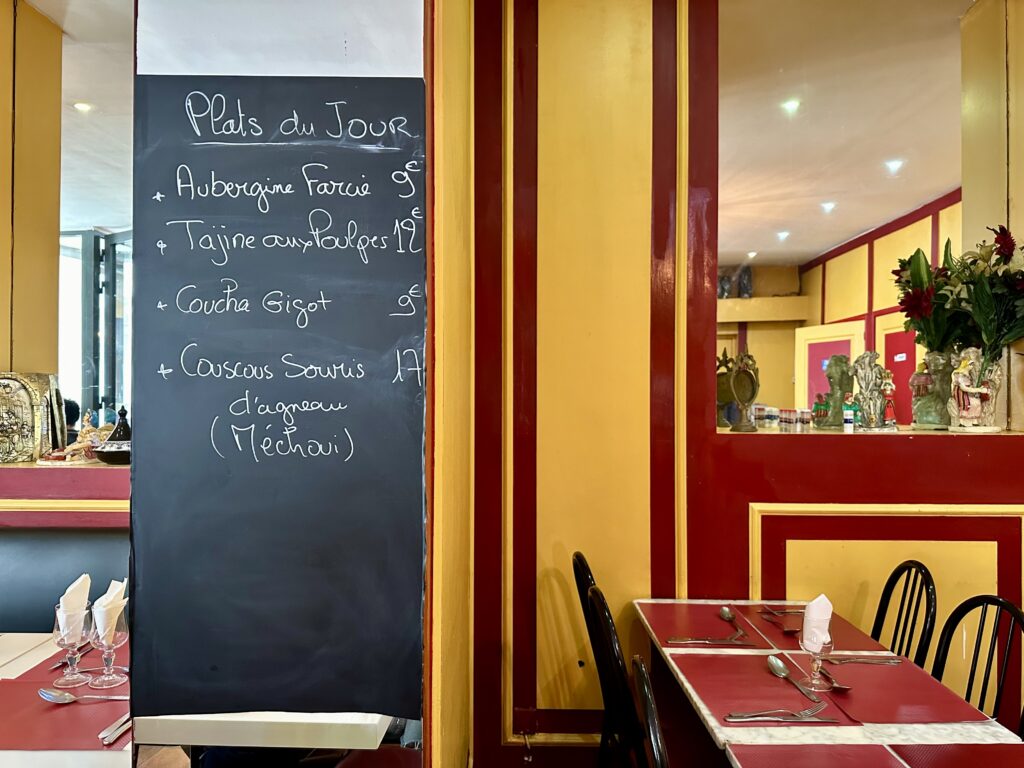 Plats du Jour
* Aubergine Farcie 9€
* Tajine aux Poulpes 12€
* Coucha Gigot 9€
* Couscous Souris 17
d'agneau
(Méchoui)